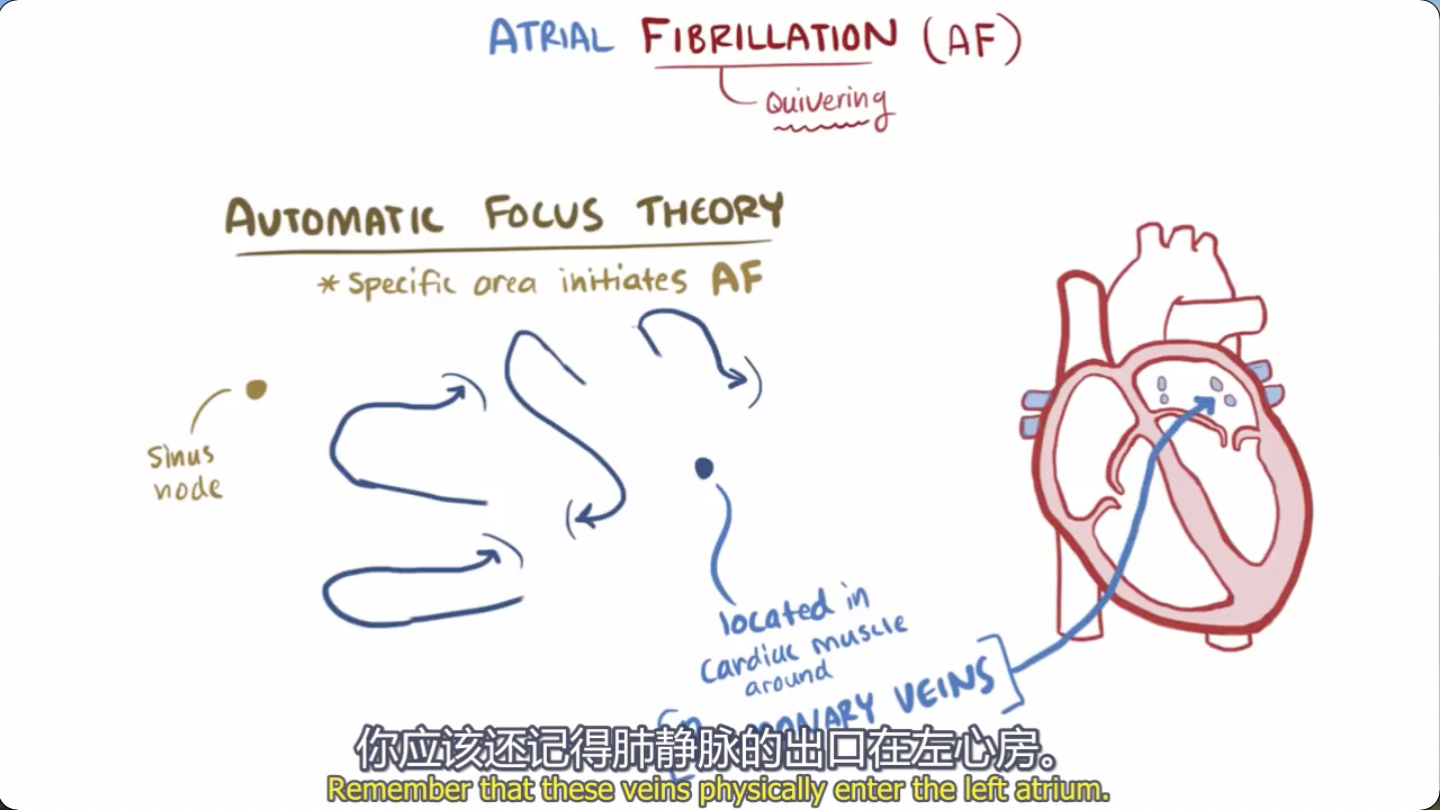 ATRIAL FIBRILLATION (AF)
Quivering
AUTOMATIC FOCUS THEORY
* Specific area initiates AF
Sinus
node
located in
cardiac muscle
around
VEINS
你应该还记得肺静脉的出口在左心房。
Remember that these veins physically enter the left atrium.